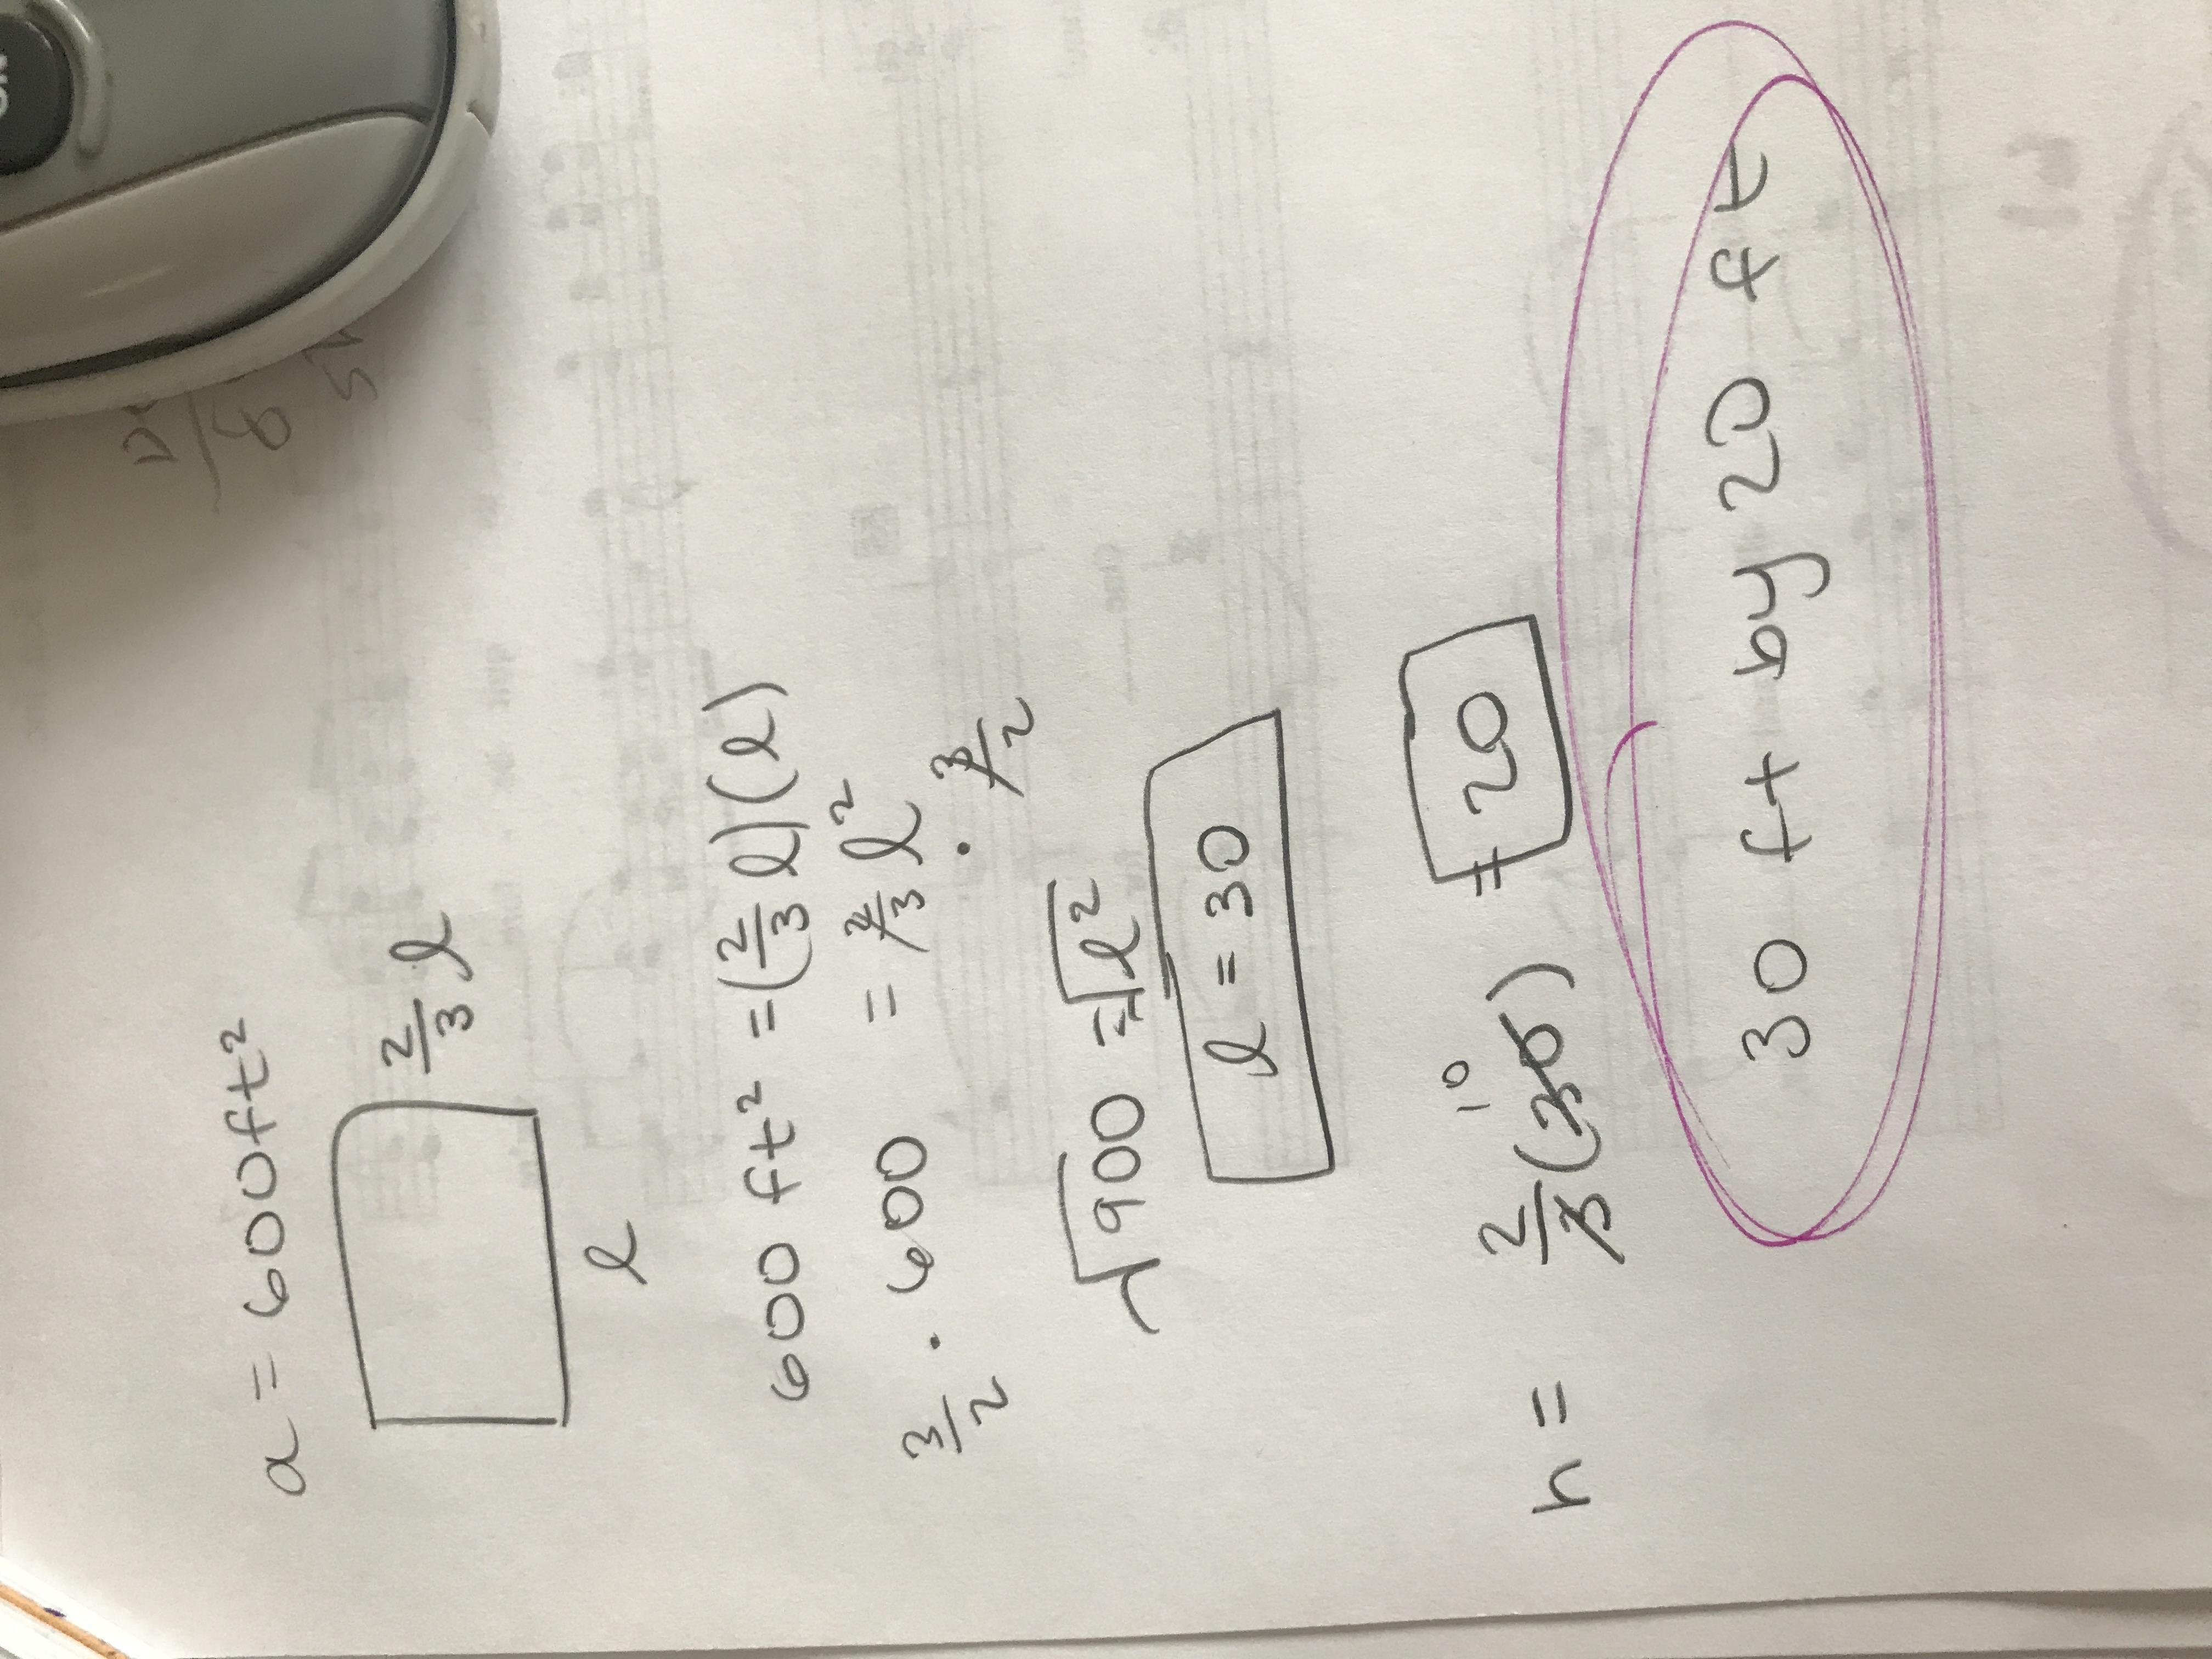 a = 600ft²
2/3 l
l
600 ft² = (2/3 l)(l)
3/2 · 600 = 2/3 l² · 3/2
√900 = √l²
l = 30
10
h = 2/3 (30) = 20
30 ft by 20 ft